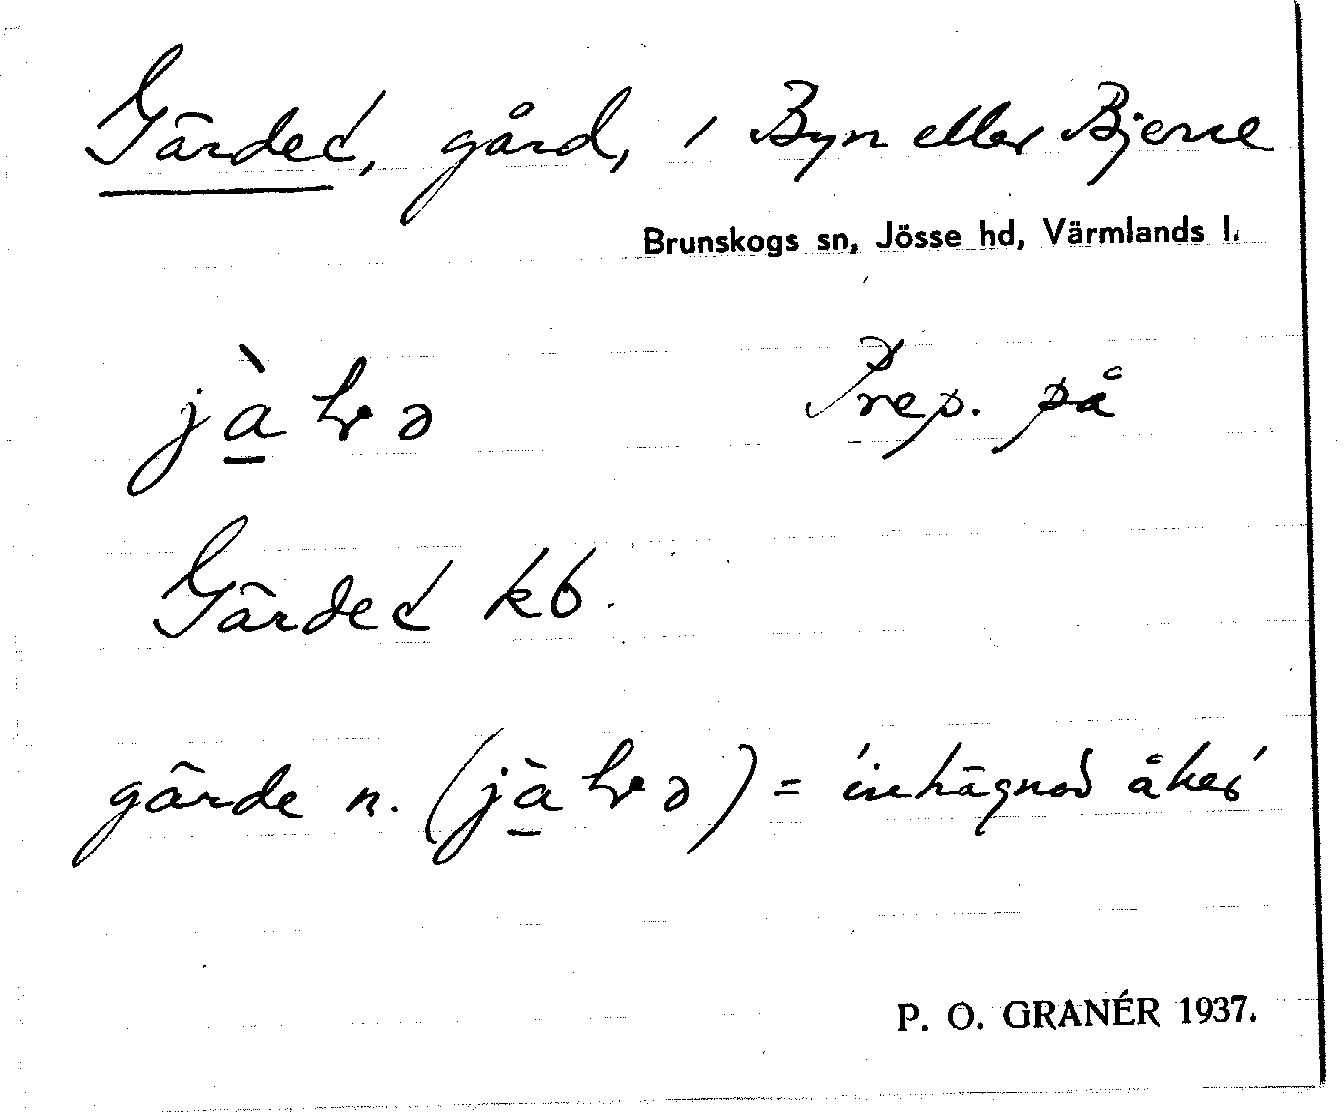 Gärdet, gård, i Byn eller Bjerne
Brunskogs sn, Jösse hd, Värmlands l.
Prep. på
Gärdet kb.
gärde n. = 'inhägnad åker'
P. O. GRANÉR 1937.